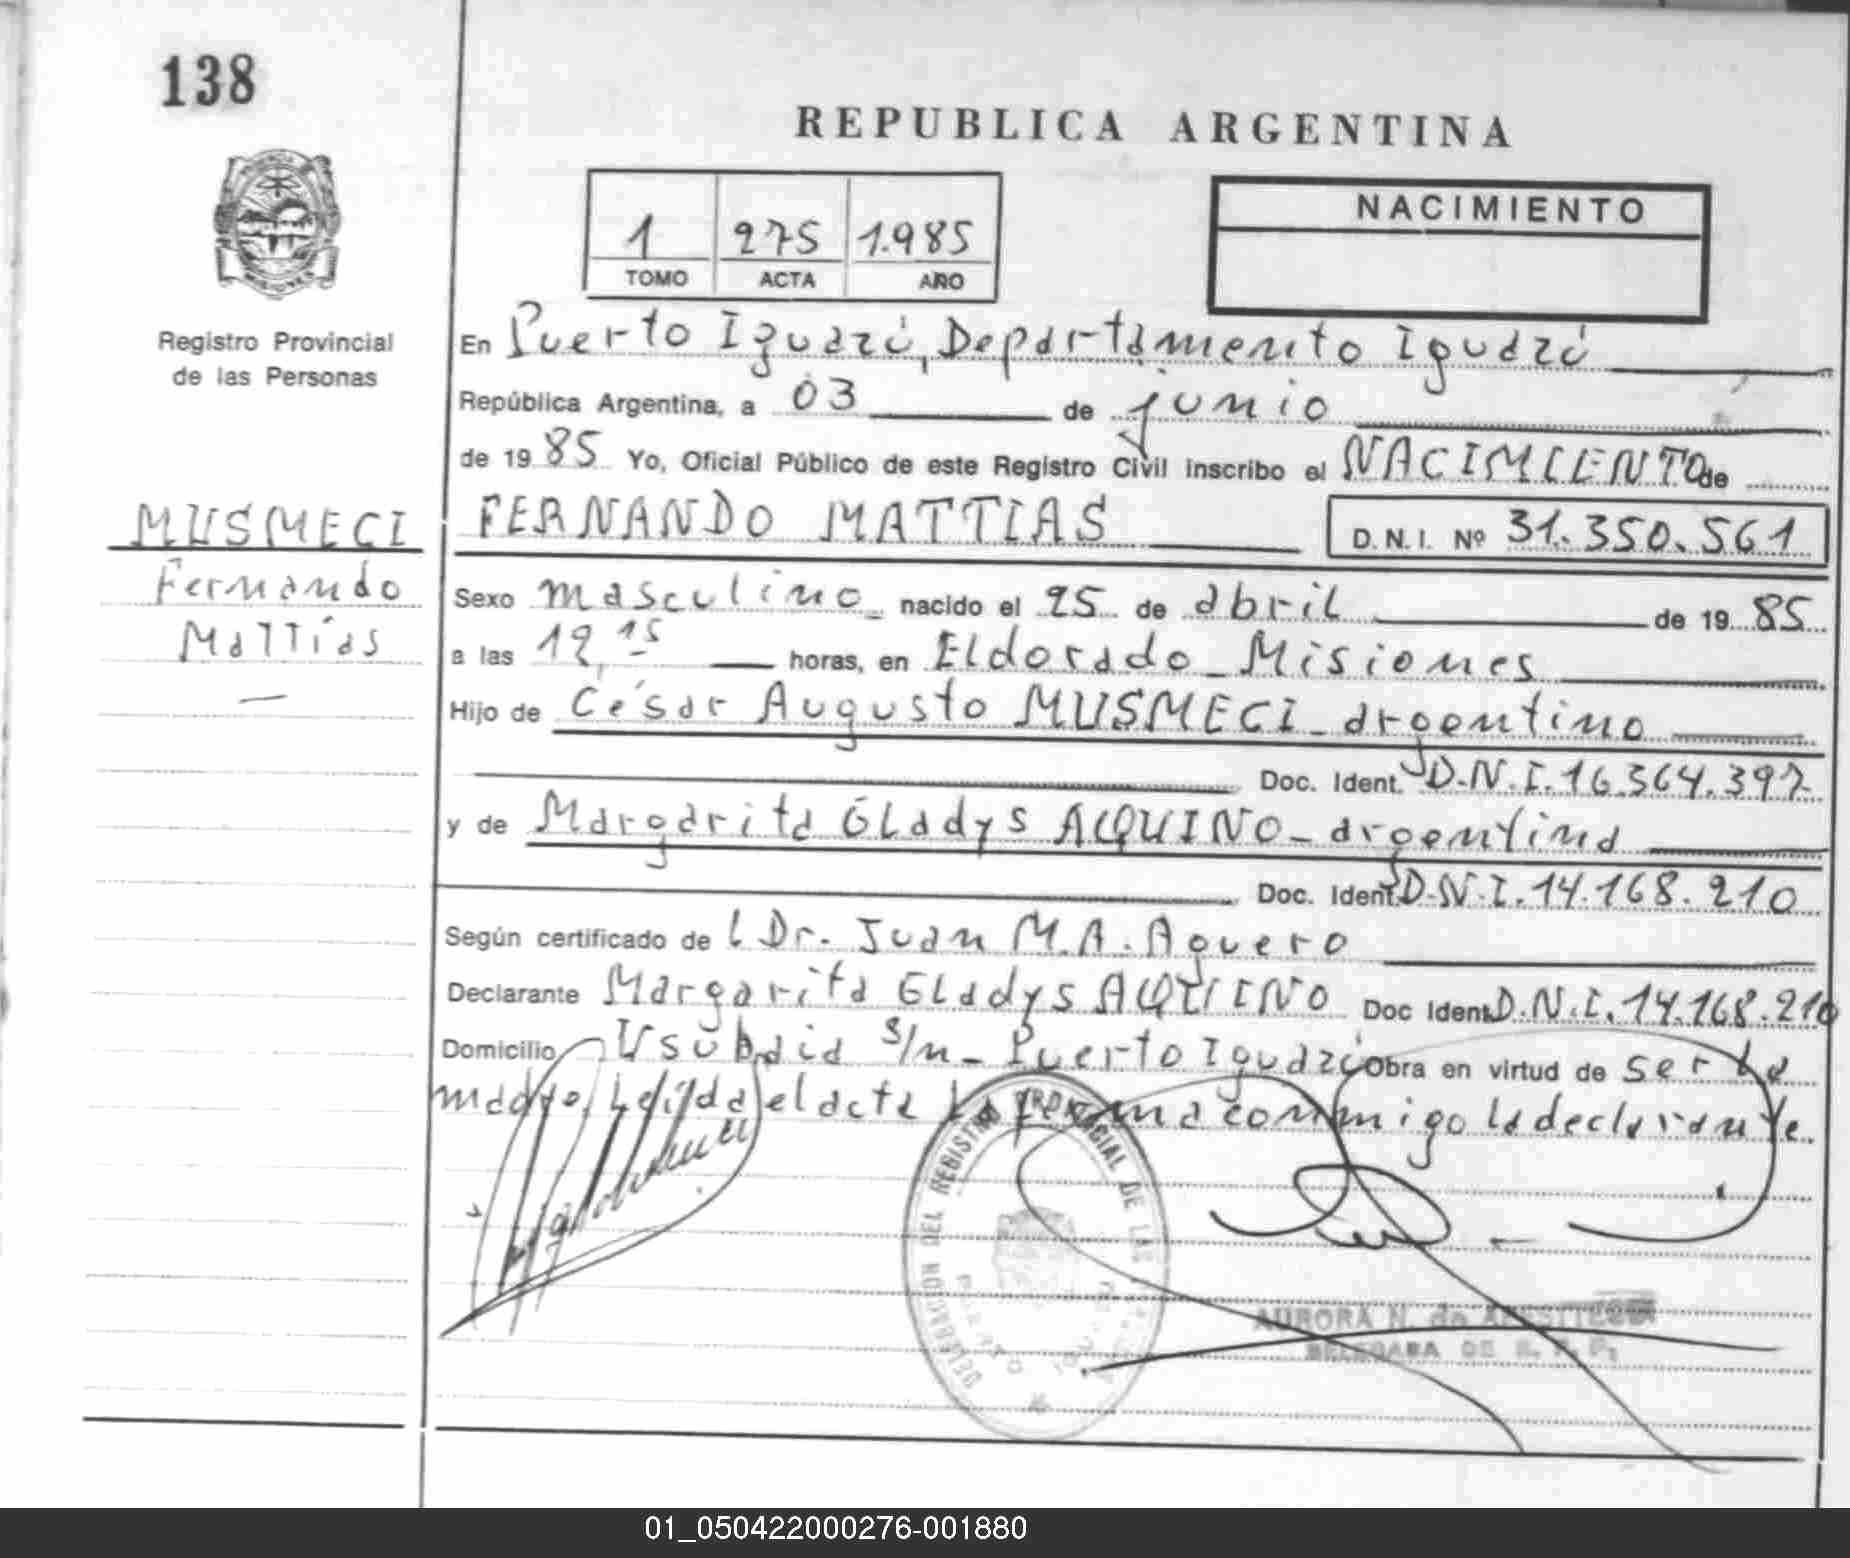 138
REPUBLICA ARGENTINA
NACIMIENTO
1 275 1.985
TOMO ACTA AÑO
Registro Provincial
de las Personas
En Puerto Iguazú, Departamento Iguazú
República Argentina, a 03 de junio
de 1985 Yo, Oficial Público de este Registro Civil inscribo el NACIMIENTO de
MUSMECI
Fernando
Mattías
FERNANDO MATTIAS D.N.I. Nº 31.350.561
Sexo masculino nacido el 25 de abril de 1985
a las 12,15 horas, en Eldorado - Misiones
Hijo de César Augusto MUSMECI - argentino
Doc. Ident. D.N.I. 16.364.397
y de Margarita Gladys AQUINO - argentina
Doc. Ident. D.N.I. 14.168.210
Según certificado de l Dr. Juan M.A. Aguero
Declarante Margarita Gladys AQUINO Doc Ident. D.N.I. 14.168.210
Domicilio s/n - Puerto Iguazú Obra en virtud de ser la
madre. Leída el acta la firma conmigo la declarante.
DELEGACION DEL REGISTRO PROVINCIAL DE LAS
AURORA N. de
DELEGADA DE R. P. P.
01_050422000276-001880